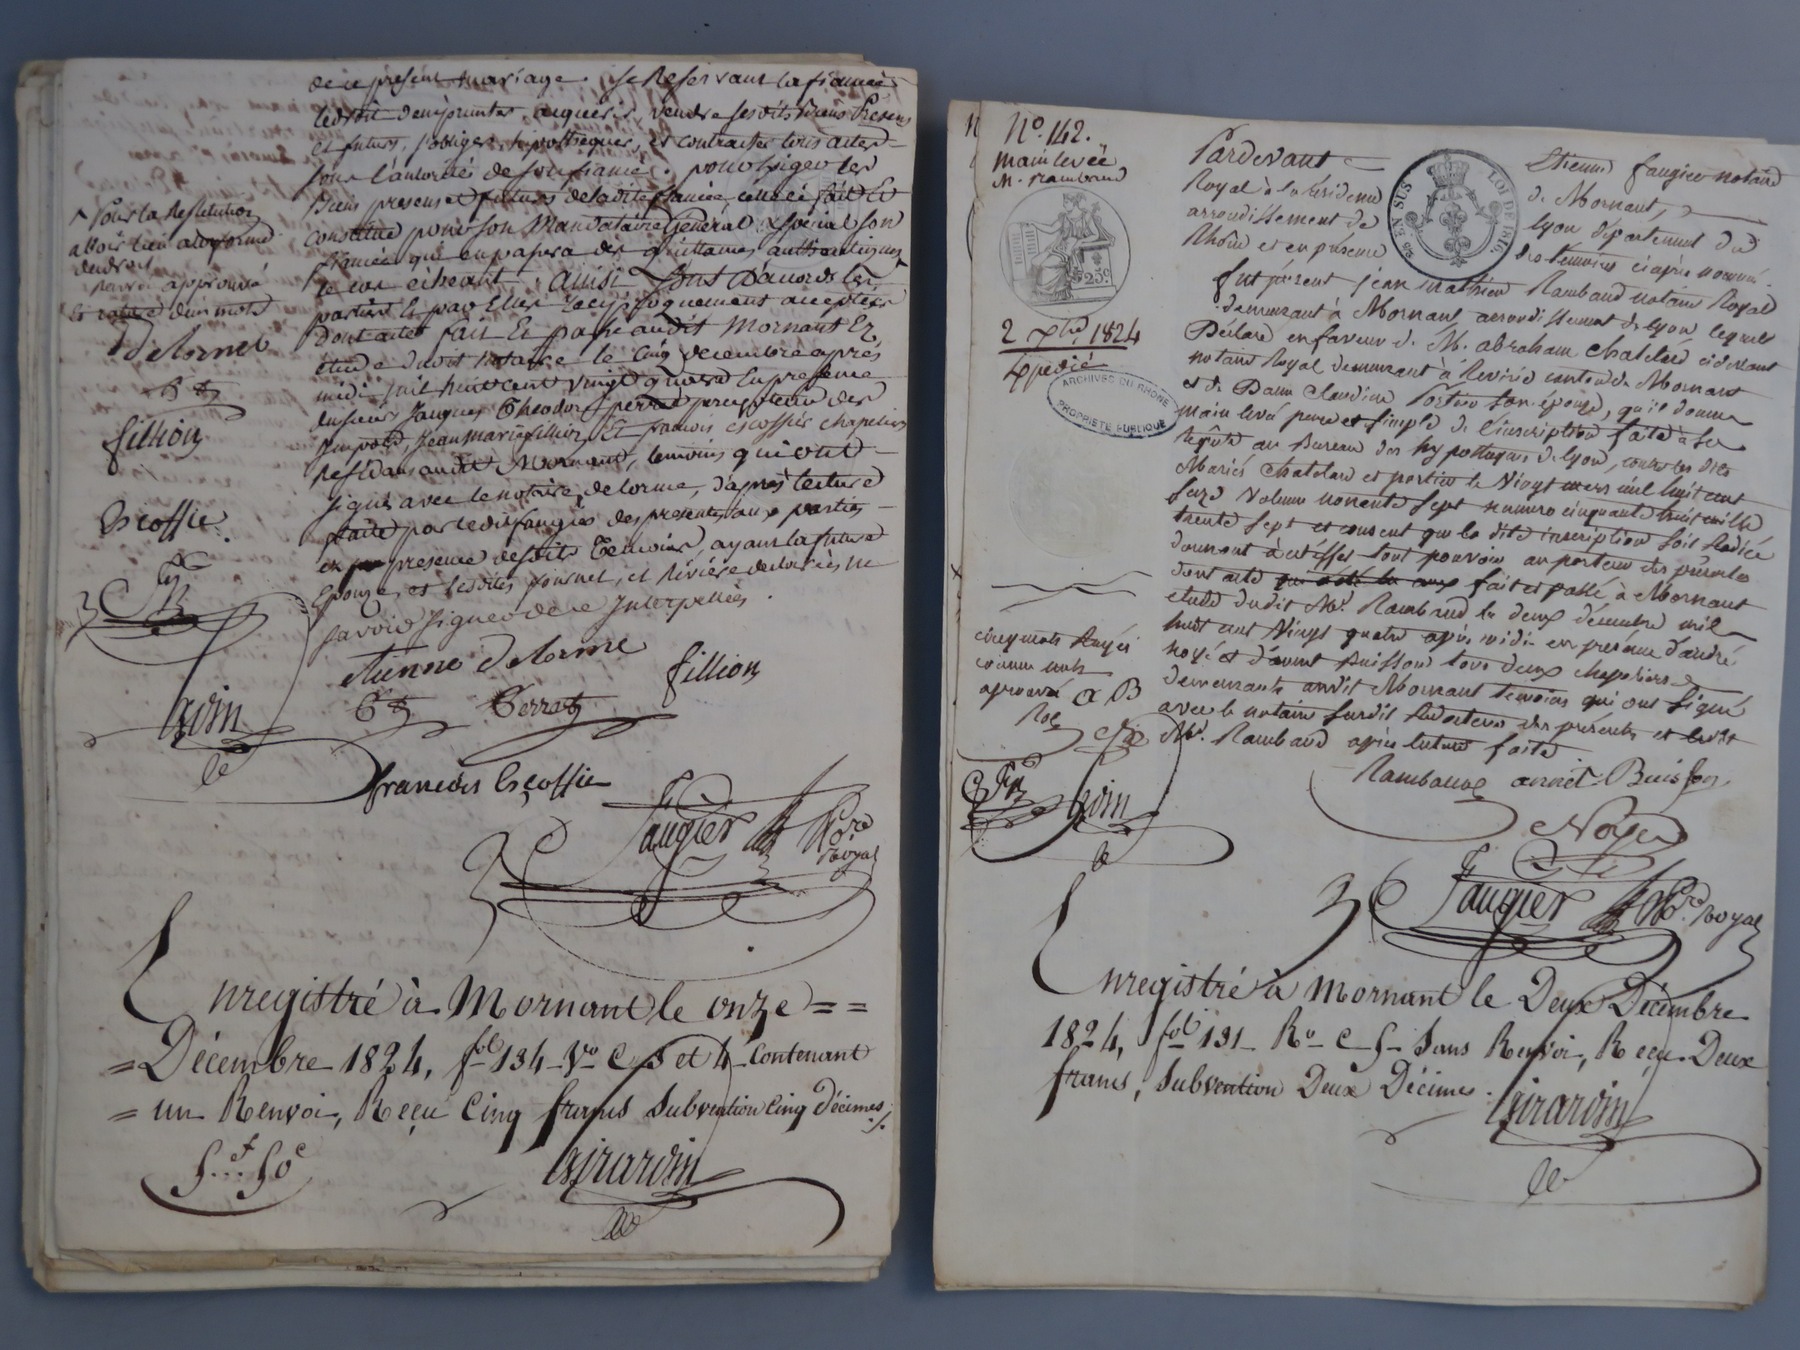 de ce présent mariage. se Réservant la fiancée
le droit d'emprunter, acquérir, vendre ses dits Biens Présens
et futurs, s'obliger, hipothequer, et contracter tous actes
sous l'autorité de son fiancé. pour exiger les
Biens présens et futurs de la dite fiancée, elle a fait Et
constitué pour son Mandataire Général & Spécial son
fiancé qui en passera des quittances authentiques
le cas écheant. Ainsi Sont D'accords les
parties Et par Elles Réciproquement acceptées
Dont acte fait Et passé audit Mornant Et
étude dudit notaire le Cinq decembre après
midi mil huit cent vingt quatre En présence
de sieurs Jacques Théodore perret percepteur des
impots, Jean Marie fillion, Et francois escoffier chapeliers
Résidans audit Mornant, temoins qui ont
signé avec le notaire, delorme, d'après lecture
faite par ledit faugier des presentes aux parties
en presence desdits Témoins, ayant la future
Epouze, et lesdits fournel, et Rivière declarés ne
savoir signer de ce Interpellés.
^ Pour la Restitution
avoir lieu
de droit
approuvé
La rature d'un mot
Delorme
fillion
Escoffier
etienne delorme
fillion
Perret
francois Escoffier
faugier Nore Royal
Enregistré à Mornant le onze ==
= Décembre 1824, fol 134 Vo C 3 et 4 Contenant
= un Renvoi, Reçu Cinq francs subvention Cinq décimes
Girardin
No. 142.
Main levée
M. Rambaud
25c.
2 Xbre 1824
Expédié
ARCHIVES DU RHONE
PROPRIETE PUBLIQUE
EN SUS
LOI DE 1816
Pardevant Etienne faugier notaire
Royal à la Résidence de Mornant,
arrondissement de Lyon département du
Rhône et en présence des témoins ci après nommés
fut présent Jean Mathieu Rambaud notaire Royal
demeurant à Mornant arrondissement de Lyon lequel
Déclare en faveur de Mr. abraham Chatelard cidevant
notaire Royal demeurant à Riverie canton de Mornant
et de Dame Claudine Portier son épouze, qu'il donne
main levé pure et simple de l'inscription faite à sa
requête au Bureau des hypotheques de Lyon, contre les dits
Mariés Chatelard et portier le Vingt mars mil huit cent
seize Volume nonante sept numero cinquante huit mille
trente sept et consent que la dite inscription soit Radiée
donnant à cet effet tout pouvoir au porteur des présentes
dont acte fait et passé à Mornant
etude dudit Mr. Rambaud le deux décembre mil
huit cent Vingt quatre après midi en présence d'andré
noyé et d'annet Buisson tous deux chapeliers
demeurants audit Mornant temoins qui ont signé
avec le notaire susdit Rédacteur des présentes et ledit
Mr. Rambaud après lecture faite
cinq mots Rayés
comme nuls
aprouvé A B
Rambaud annet Buisson
Noyer
faugier Nore Royal
Enregistré à Mornant le Deux Décembre
1824, fol 131 Ro C 5 Sans Renvoi, Reçu Deux
francs, subvention Deux Décimes.
Girardin